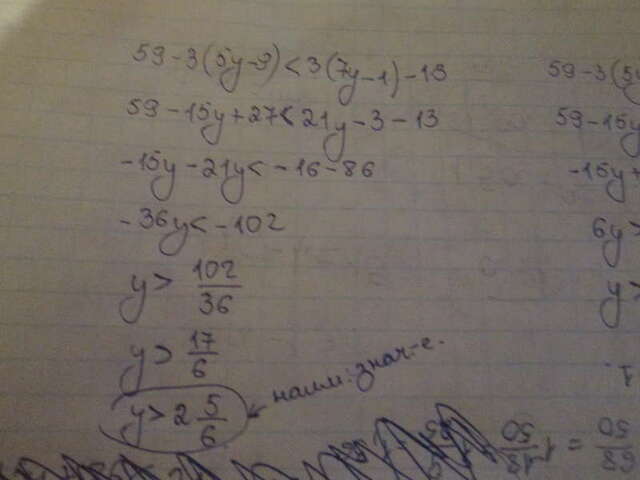 59-3(5y-9)<3(7y-1)-13
59-15y+27<21y-3-13
-15y-21y<-16-86
-36y<-102
y> 102/36
y> 17/6
y>2 5/6 ← наим. знач-е.
59-3(5y
59-15y
-15y+
6y>
y>
1.